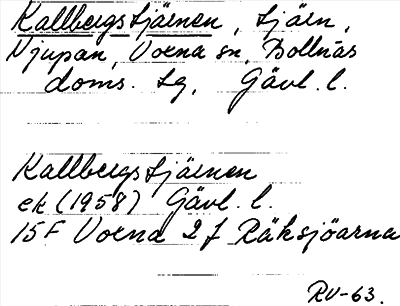 Kallbergstjärnen, tjärn,
Njupan, Voxna sn, Bollnäs
doms. tg, Gävl. l.
Kallbergstjärnen
ek (1958) Gävl. l.
15F Voxna 2 f Räksjöarna
RV-63.